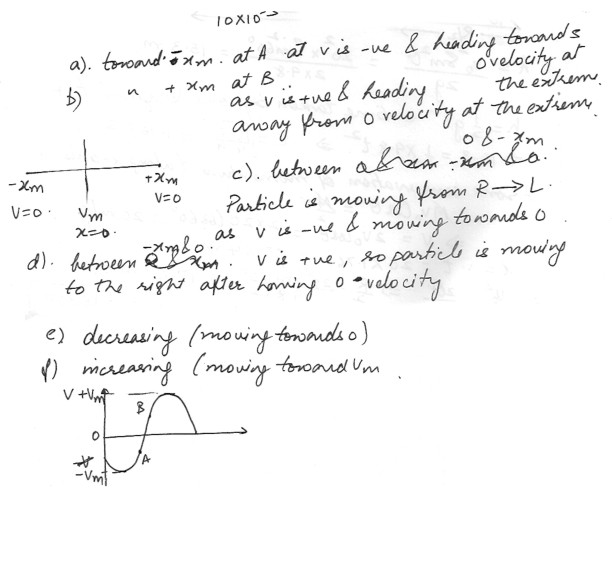 10×10⁻
a). toward - xm. at A at v is -ve & heading towards
0 velocity at
the extreme.
b) " + xm at B ..
as v is +ve & heading
away from 0 velocity at the extreme
0 & -xm
c). between
-xm +xm
V=0. Vm V=0
x=0.
Particle is moving from R → L.
as v is -ve & moving towards 0.
-xm & 0.
d). between . v is +ve, so particle is moving
to the right after having 0 velocity
e) decreasing (moving towards 0)
f) increasing (moving toward Vm.
V +Vm
B
0
A
-Vm